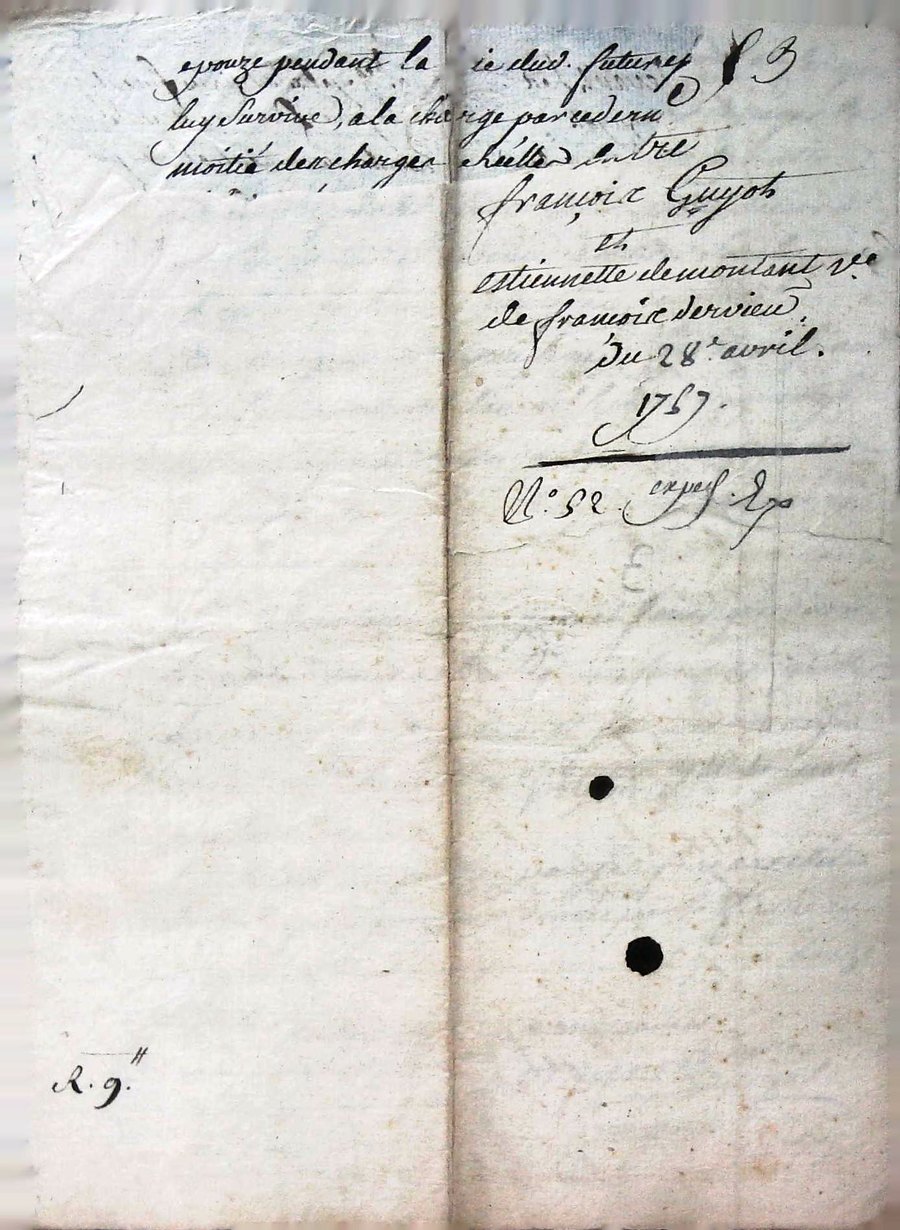 epouze pendant la ie dud. futur ep 3
luy Survive, a la charge par ced
moitié des charges réelles
entre
françoix Guyot
et
estiennette demontant v.e
de françoix dervieu,
du 28.e avril.
1757.
N.o 52. exped. Exp
R. 9.tt